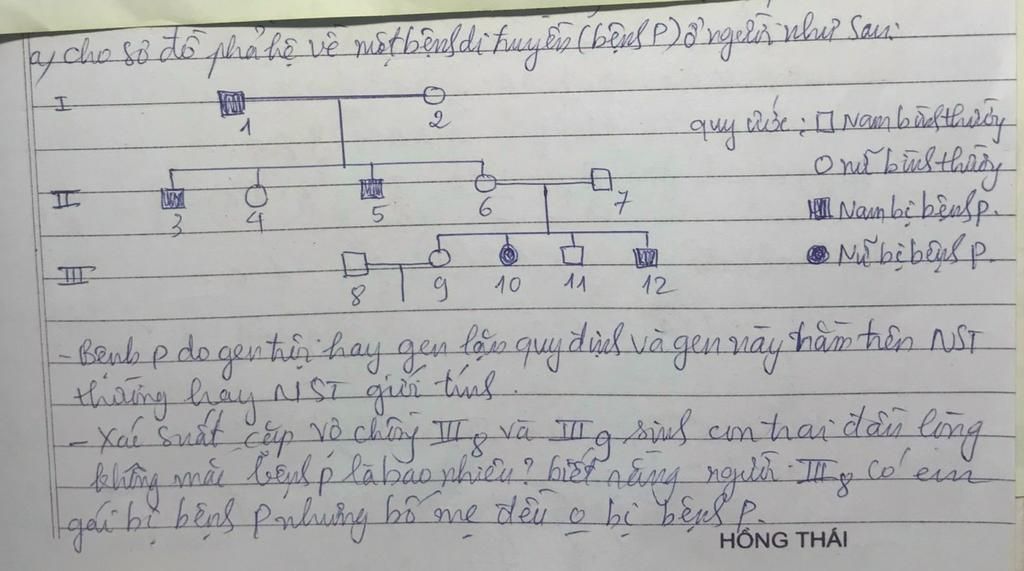 a, cho sơ đồ phả hệ về một bệnh di truyền (bệnh P) ở người như sau:
I
1
2
quy ước: Nam bình thường
nữ bình thường
II
3
4
5
6
7
Nam bị bệnh P.
Nữ bị bệnh P.
III
8
9
10
11
12
- Bệnh P do gen trội hay gen lặn quy định và gen này nằm trên NST
thường hay NST giới tính.
- Xác suất cặp vợ chồng III8 và III9 sinh con trai đầu lòng
không mắc bệnh P là bao nhiêu? biết rằng người III8 có em
gái bị bệnh P nhưng bố mẹ đều o bị bệnh P.
HỒNG THÁI